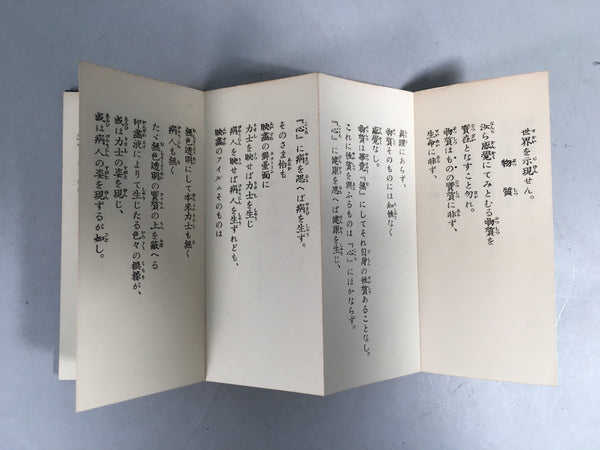 世界を示現せん。
物質
汝ら感覺にてみとむる物質を
實在となすこと勿れ。
物質はものの實質に非ず、
生命に非ず、
眞理にあらず、
物質そのものには知性なく
感覺なし。
物質は畢竟『無』にしてそれ自身の性質あることなし。
これに性質を與ふるものは『心』にほかならず。
『心』に健康を思へば健康を生じ、
『心』に病を思へば病を生ず。
そのさま恰も
映畫の舞臺面に
力士を映せば力士を生じ
病人を映せば病人を生ずれども、
映畫のフイルムそのものは
無色透明にして本來力士も無く
病人も無く
たゞ無色透明の實質の上を蔽へる
印畫液によりて生じたる色々の模樣が、
或は力士の姿を現じ、
或は病人の姿を現ずるが如し。